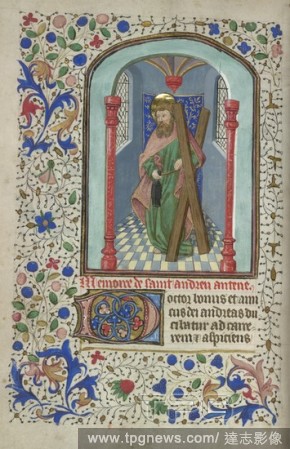 Memoire de saint andrieu antene.
Doctor bonus et ami
cus dei andreas du
citatur ad cru
cem aspiciens
www.tpgnews.com/ 達志影像